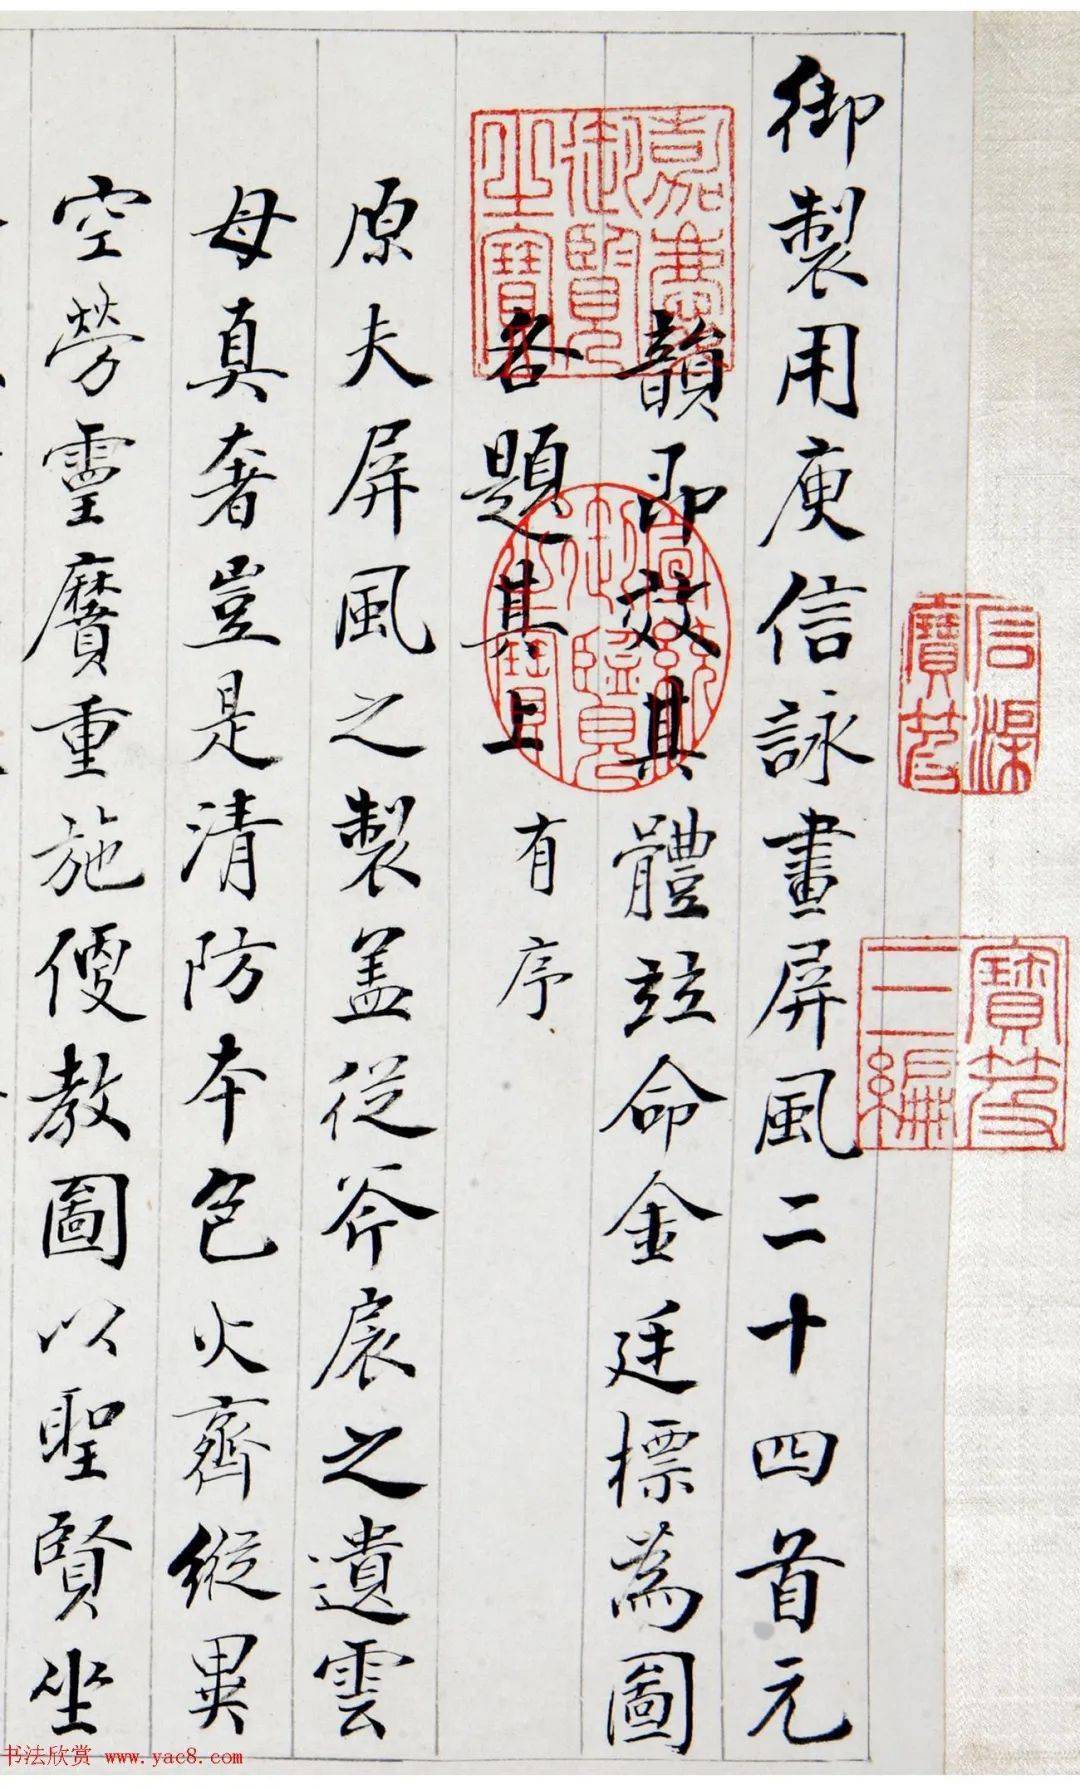 御製用庾信詠畫屏風二十四首元
韻即效其體竝命金廷標為圖
各題其上有序
原夫屏風之製盖從斧扆之遺雲
母真奢豈是清防本色火齊縱異
空勞靈贗重施便教圖以聖賢坐
嘉慶御覽之寶
宣統御覽之寶
石渠寶笈
寶笈三編
书法欣赏 www.yac8.com